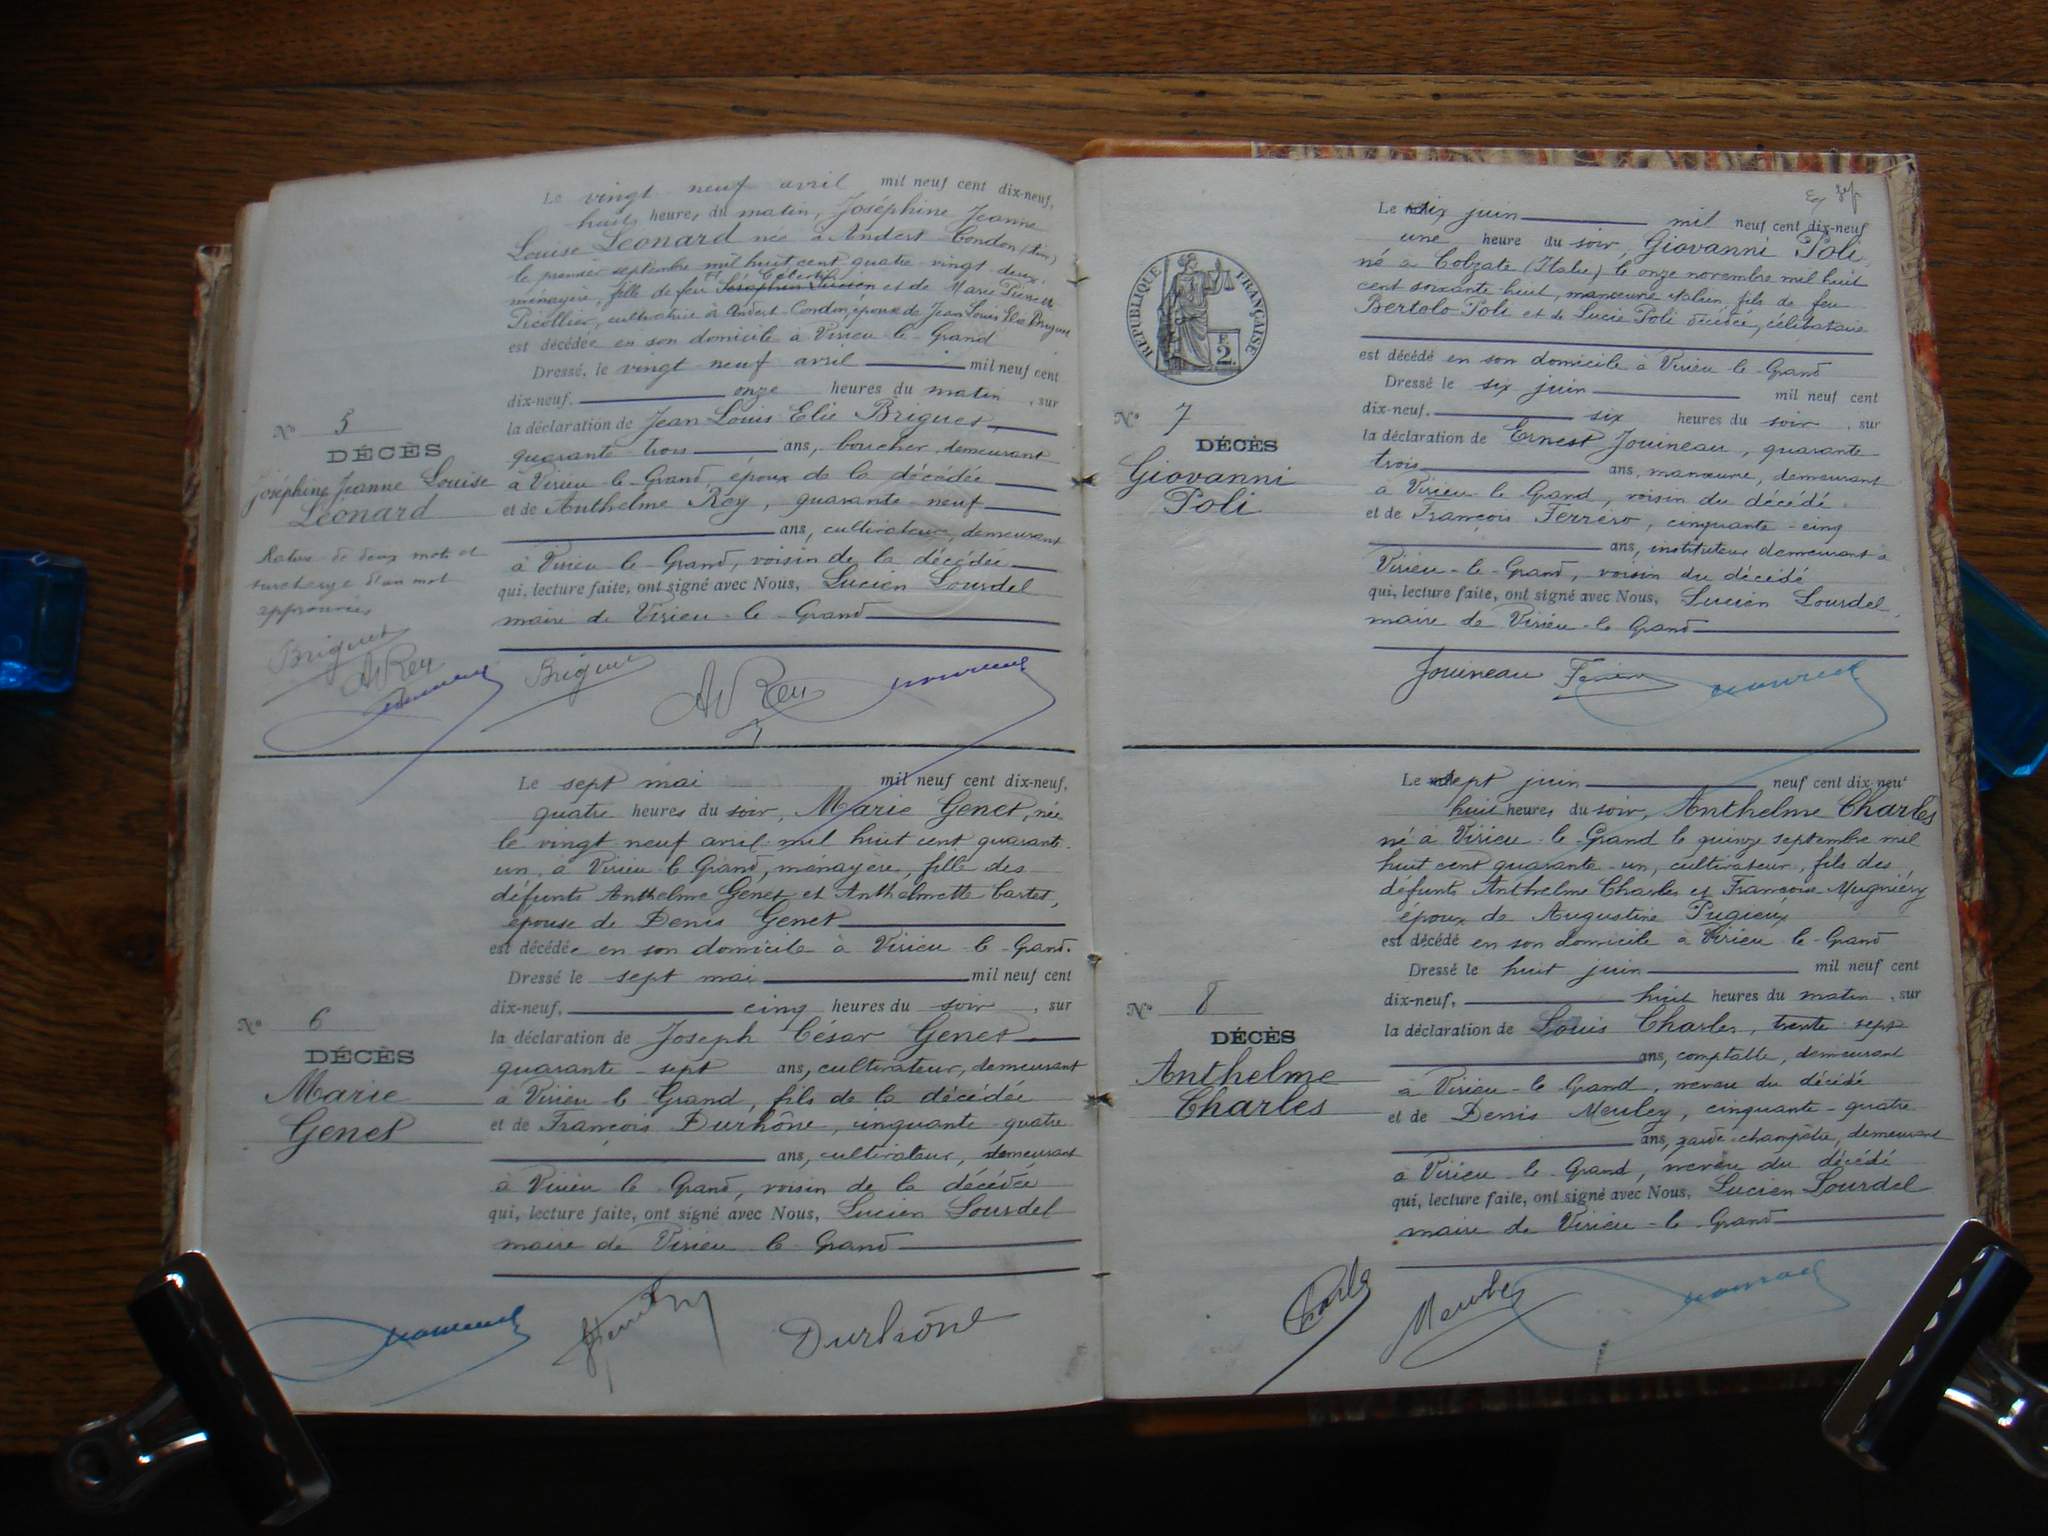 Le vingt neuf avril mil neuf cent dix-neuf,
huit heures du matin, Joséphine Jeanne
Louise Léonard née à Andert-Condon (Ain)
le premier septembre mil huit cent quatre vingt deux
ménagère, fille de feu Séraphin Lucien et de Marie
Picollier, cultivatrice à Andert-Condon, épouse de Jean Louis Elie Briguet
est décédée en son domicile à Virieu-le-Grand
Dressé, le vingt neuf avril mil neuf cent
dix-neuf, onze heures du matin, sur
la déclaration de Jean Louis Elie Briguet,
quarante trois ans, boucher, demeurant
à Virieu-le-Grand, époux de la décédée
et de Anthelme Rey, quarante-neuf
ans, cultivateur, demeurant
à Virieu-le-Grand, voisin de la décédée
qui, lecture faite, ont signé avec Nous, Lucien Lourdel
maire de Virieu-le-Grand
N° 5
DÉCÈS
Joséphine Jeanne Louise
Léonard
Rature de deux mots et
surcharge d'un mot
approuvées
Briguet
A Rey
Briguet
A Rey
Le sept mai mil neuf cent dix-neuf,
quatre heures du soir, Marie Genet, née
le vingt neuf avril mil huit cent quarante
un à Virieu-le-Grand, ménagère, fille des
défunts Anthelme Genet et Anthelmette Cartet,
épouse de Denis Genet
est décédée en son domicile à Virieu-le-Grand.
Dressé le sept mai mil neuf cent
dix-neuf, cinq heures du soir, sur
la déclaration de Joseph César Genet
quarante-sept ans, cultivateur, demeurant
à Virieu-le-Grand, fils de la décédée
et de François Durhône, cinquante-quatre
ans, cultivateur, demeurant
à Virieu-le-Grand, voisin de la décédée
qui, lecture faite, ont signé avec Nous, Lucien Lourdel
maire de Virieu-le-Grand
N° 6
DÉCÈS
Marie
Genet
Durhône
RÉPUBLIQUE FRANÇAISE
F.
2.
Le six juin mil neuf cent dix-neuf
une heure du soir, Giovanni Poli,
né à Colzate (Italie) le onze novembre mil huit
cent soixante-huit, manœuvre italien, fils de feu
Bertolo Poli et de Lucie Poli décédée, célibataire
est décédé en son domicile à Virieu-le-Grand
Dressé le six juin mil neuf cent
dix-neuf, six heures du soir, sur
la déclaration de Ernest Jouineau, quarante-
trois ans, manœuvre, demeurant
à Virieu-le-Grand, voisin du décédé
et de François Ferrero, cinquante-cinq
ans, instituteur demeurant à
Virieu-le-Grand, voisin du décédé
qui, lecture faite, ont signé avec Nous, Lucien Lourdel,
maire de Virieu-le-Grand
N° 7
DÉCÈS
Giovanni
Poli
Jouineau
Le sept juin neuf cent dix-neuf
huit heures du soir, Anthelme Charles
né à Virieu-le-Grand le quinze septembre mil
huit cent quarante-un, cultivateur, fils des
défunts Anthelme Charles et Françoise Mugniéry
époux de Augustine Pugieux
est décédé en son domicile à Virieu-le-Grand
Dressé le huit juin mil neuf cent
dix-neuf, huit heures du matin, sur
la déclaration de Louis Charles, trente-sept
ans, comptable, demeurant
à Virieu-le-Grand, neveu du décédé
et de Denis Meuley, cinquante-quatre
ans, garde-champêtre, demeurant
à Virieu-le-Grand, neveu du décédé
qui, lecture faite, ont signé avec Nous, Lucien Lourdel
maire de Virieu-le-Grand
N° 8
DÉCÈS
Anthelme
Charles
Charles